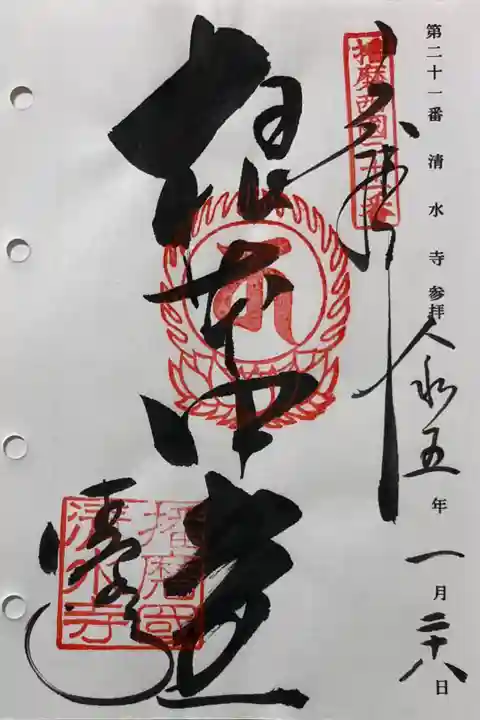 第二十一番 清水寺参拝 令和五年一月二十八日
播磨西國二十一番
根本中堂
播磨國
清水寺